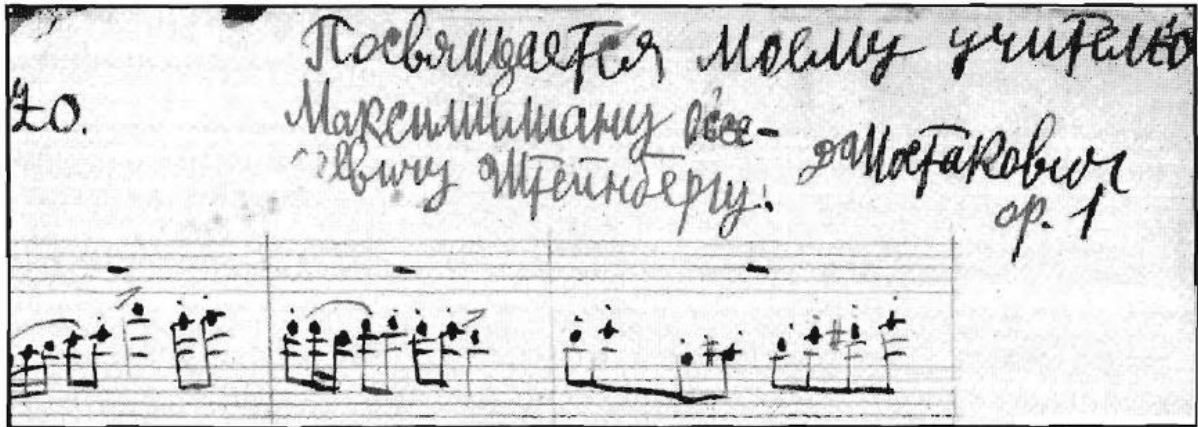 Посвящается моему учителю
zo.
Максимилиану Осее-
евичу Штейнбергу.
ДШостакович
op. 1